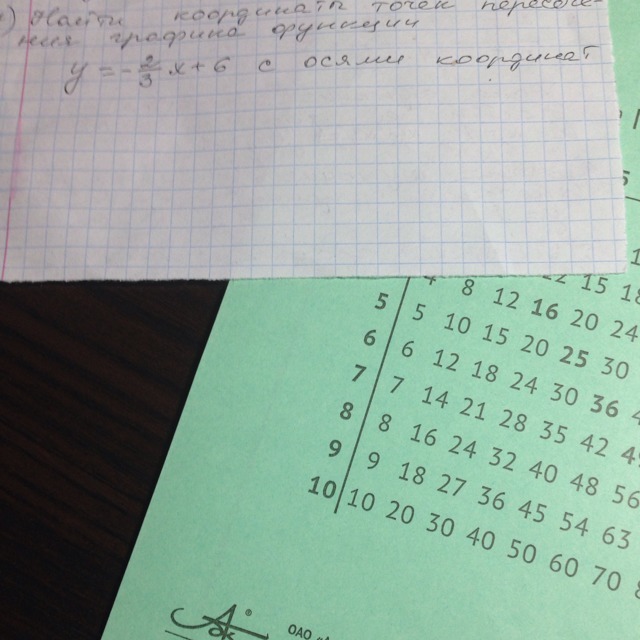 Найти координаты точек пересече-
ния графика функции
y = -2/3 x + 6 с осями координат
5 4 8 12 16 20 24
6 5 10 15 20 25 30
7 6 12 18 24 30 36
8 7 14 21 28 35 42 49
9 8 16 24 32 40 48 56
10 9 18 27 36 45 54 63
10 20 30 40 50 60 70
ОАО